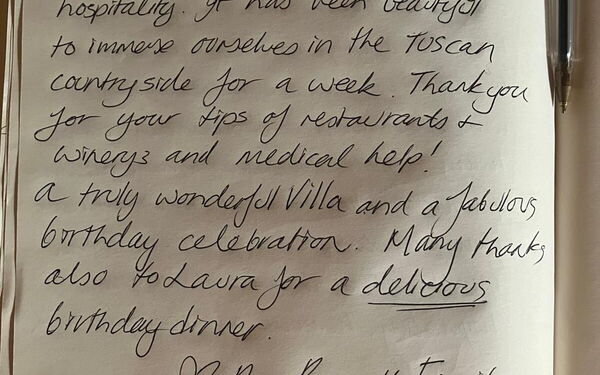 hospitality. It has been beautiful
to immerse ourselves in the Tuscan
countryside for a week. Thank you
for your tips of restaurants +
winerys and medical help!
a truly wonderful Villa and a fabulous
birthday celebration. Many thanks
also to Laura for a delicious
birthday dinner.